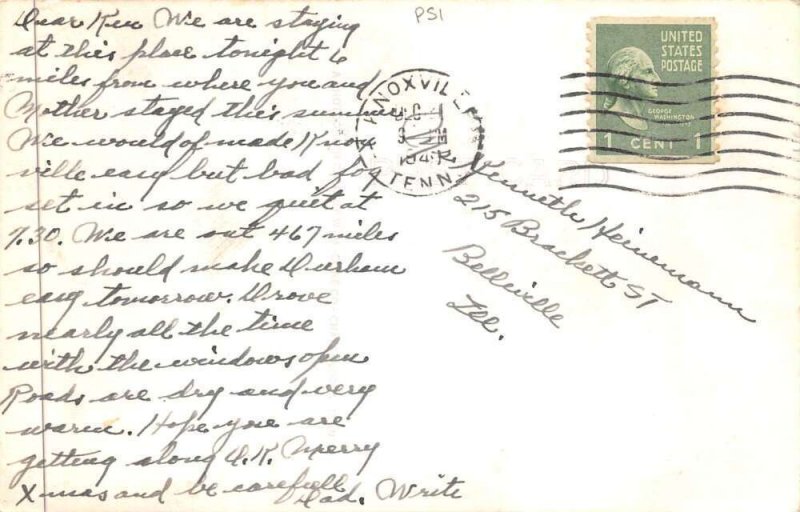 PS1
Dear Ken We are staying
at this place tonight 6
miles from where you and
Mother stayed this summer
We would of made Knox
ville easy but bad fog
set in so we quit at
7.30. We are out 467 miles
so should make Durham
easy tomorrow. Drove
nearly all the time
with the windows open
Roads are dry and very
warm. Hope you are
getting along O.K. Merry
X-mas and be carefull Dad. Write
KNOXVILLE
TENN.
UNITED
STATES
POSTAGE
GEORGE
WASHINGTON
1 CENT 1
Kenneth Heinemann
215 Brackett ST
Belleville
Ill.